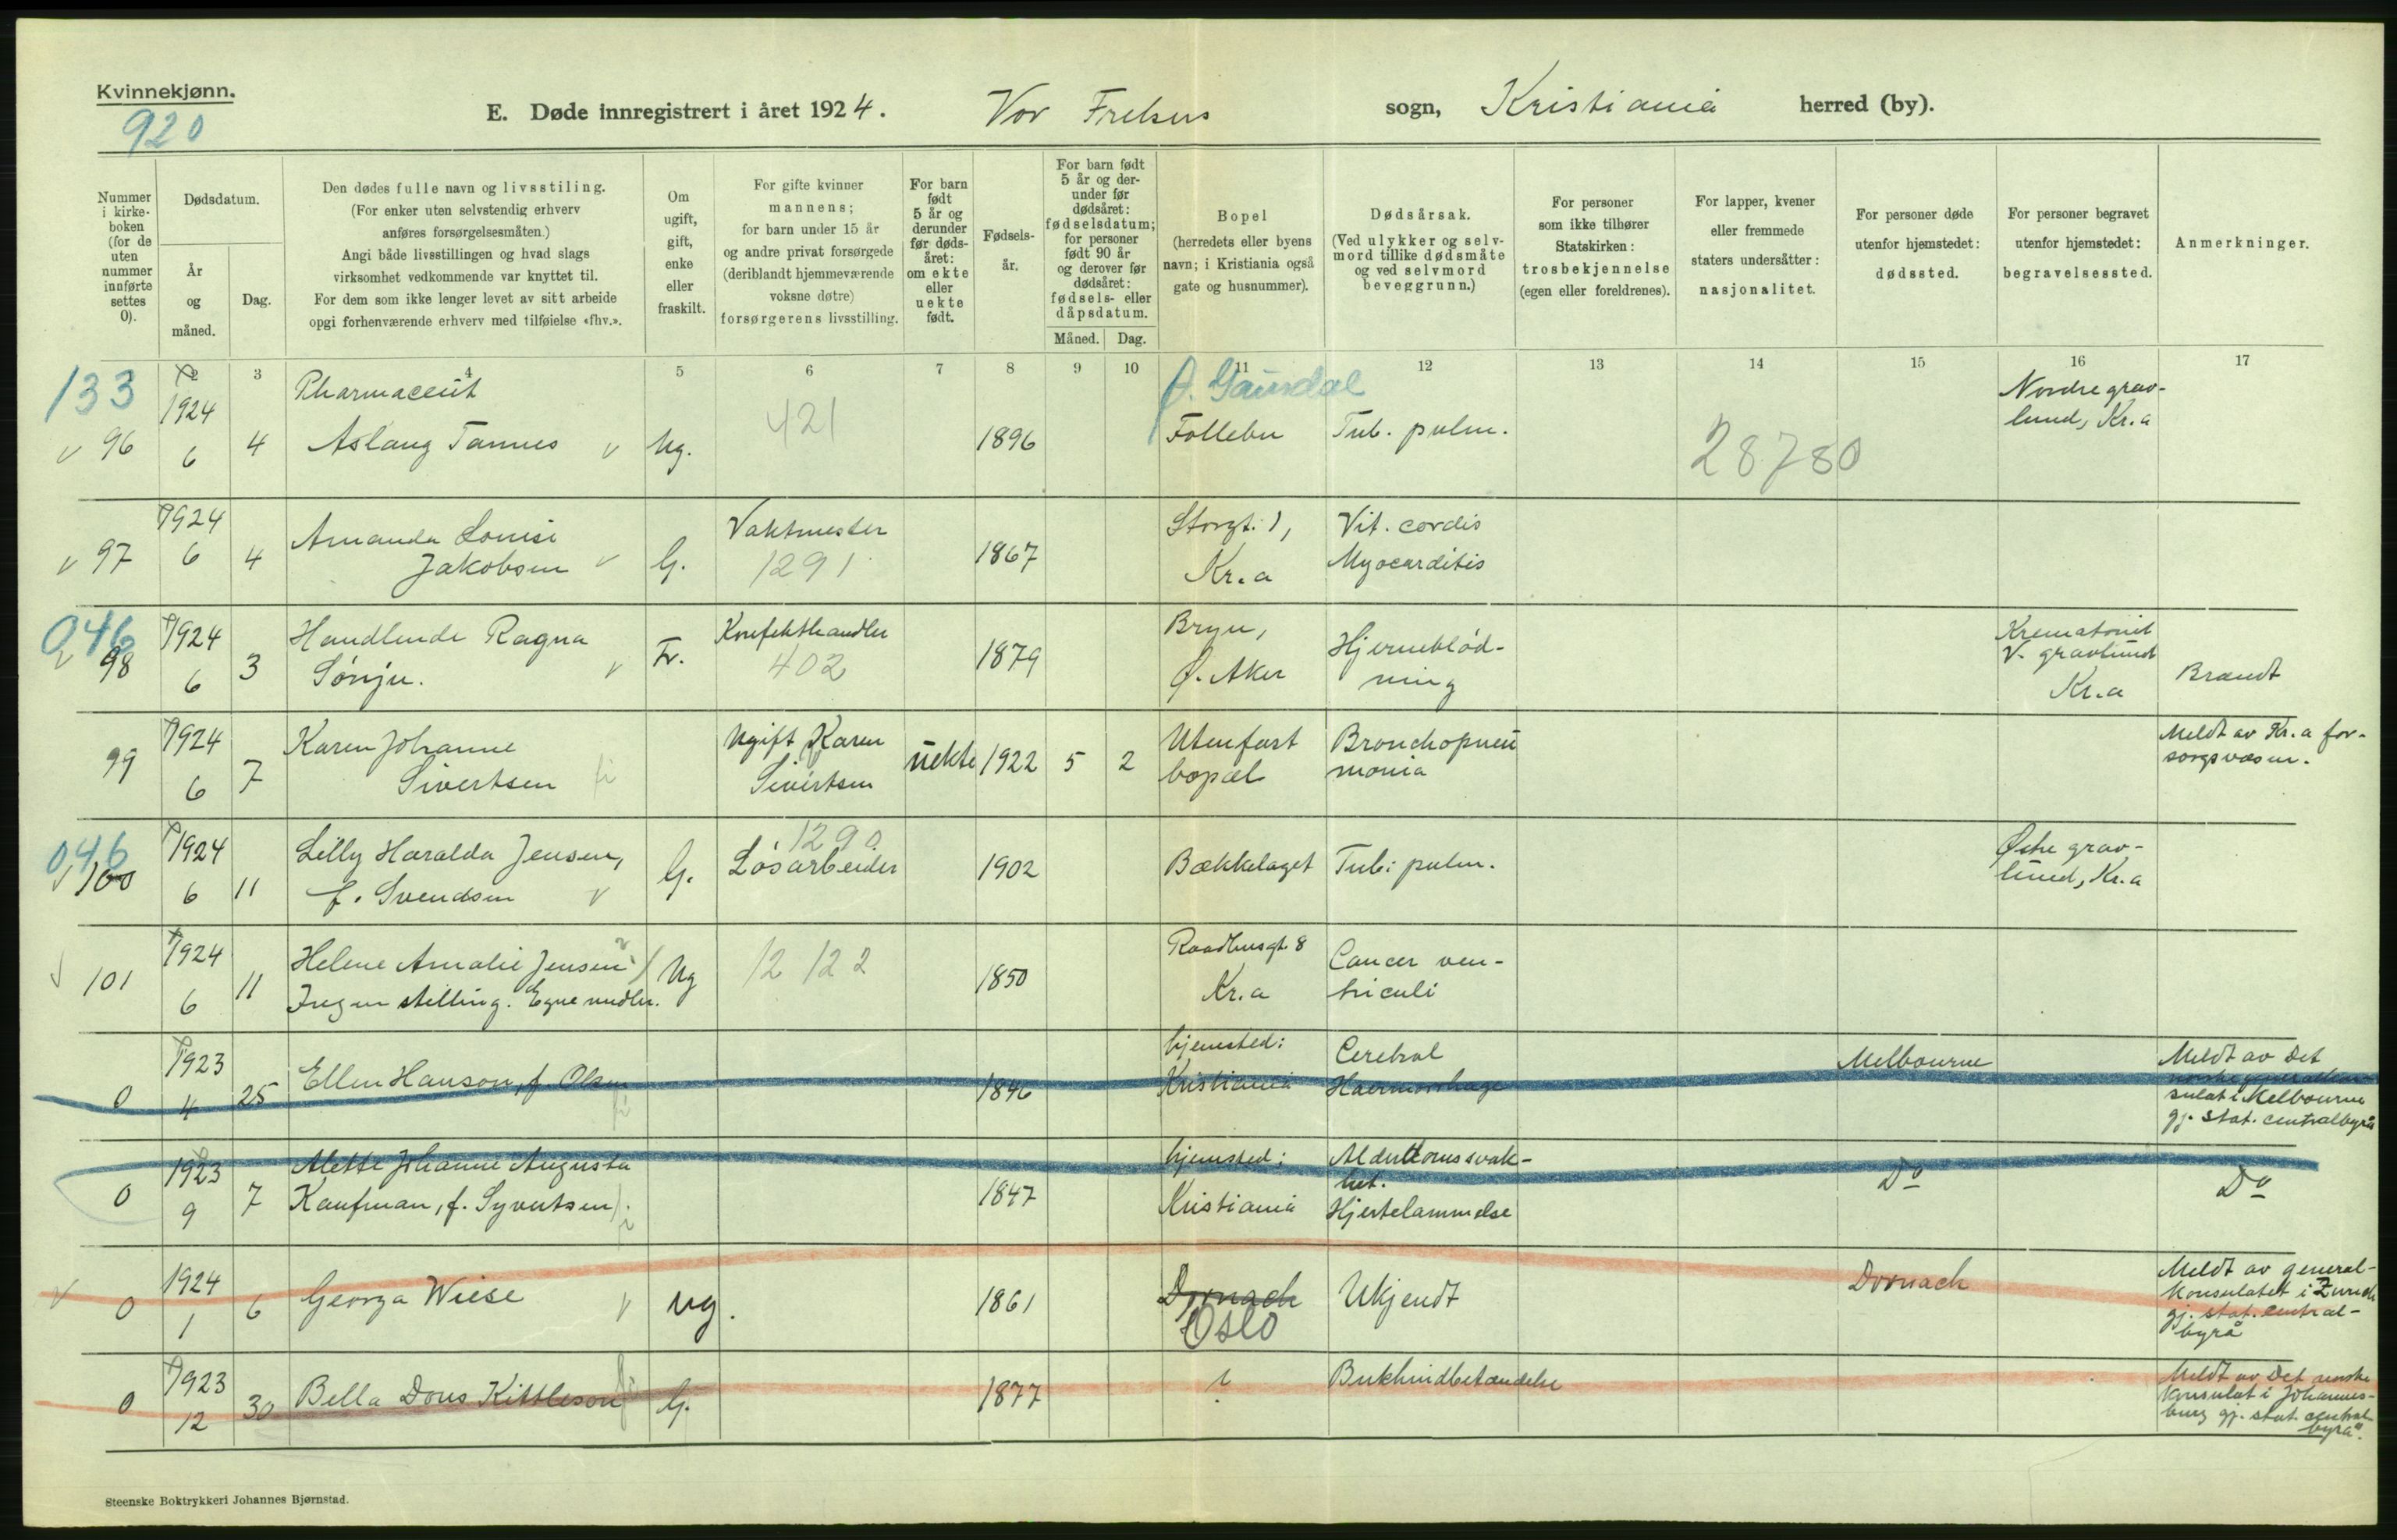 Kvinnekjønn.
920
E. Døde innregistrert i året 1924. Vor Frelsers sogn, Kristiania herred (by).
Nummer i kirke- boken (for de uten nummer innførte settes 0).
Dødsdatum.
År og måned.
Dag.
Den dødes fulle navn og livsstiling.
(For enker uten selvstendig erhverv
anføres forsørgelsesmåten.)
Angi både livsstillingen og hvad slags
virksomhet vedkommende var knyttet til.
For dem som ikke lenger levet av sitt arbeide
opgi forhenværende erhverv med tilføielse «fhv.».
Om
ugift,
gift,
enke
eller
fraskilt.
For gifte kvinner
mannens;
for barn under 15 år
og andre privat forsørgede
(deriblandt hjemmeværende
voksne døtre)
forsørgerens livsstilling.
For barn
født
5 år og
derunder
før døds-
året:
om ekte
eller
uekte
født.
Fødsels-
år.
For barn født
5 år og der-
under før
dødsåret:
fødselsdatum;
for personer
født 90 år
og derover før
dødsåret:
fødsels- eller
dåpsdatum.
Måned. Dag.
Bopel
(herredets eller byens
navn; i Kristiania også
gate og husnummer).
Dødsårsak.
(Ved ulykker og selv-
mord tillike dødsmåte
og ved selvmord
beveggrunn.)
For personer
som ikke tilhører
Statskirken:
trosbekjennelse
(egen eller foreldrenes).
For lapper, kvener
eller fremmede
staters undersåtter:
nasjonalitet.
For personer døde
utenfor hjemstedet:
dødssted.
For personer begravet
utenfor hjemstedet:
begravelsessted.
Anmerkninger.
2 3 4 5 6 7 8 9 10 11 12 13 14 15 16 17
133
v 96
1924
6
4
Pharmaceut
Aslaug Tannes v
Ug.
421
1896
Ø. Gausdal
Follebu
Tub. pulm.
28780
Nordre grav-
lund, Kr.a
v 97
1924
6
4
Amanda Louise
Jakobsen v
G.
Vaktmester
1291
1867
Storgt. 1,
Kr.a
Vit. cordis
Myocarditis
046
v 98
1924
6
3
Handlende Ragna
Sønju. v
Fr.
Konfekthandler
402
1879
Bryn,
Ø. Aker
Hjerneblød-
ning
Krematoriet
V. gravlund
Kr.a
Brandt
99
1924
6
7
Karen Johanne
Sivertsen fi
Ugift Karen
Sivertsen
uekte
1922
5
2
Utenfast
bopæl
Bronchopneu
monia
Meldt av Kr.a for-
sorgsvæsen.
046
v 100
1924
6
11
Lilly Haralda Jensen,
f. Svendsen v
G.
1290
Løsarbeider
1902
Bækkelaget
Tub: pulm.
Østre grav-
lund, Kr.a
101
1924
6
11
Helene Amalie Jensen
Ingen stilling. Egne midler.
Ug
12 122
1850
Raadhusgt. 8
Kr.a
Cancer ven-
triculi
0
1923
4
25
Ellen Hanson, f. Olsen
fi
1846
hjemsted:
Kristiania
Cerebral
Haermorrhage
Melbourne
Meldt av Det
norske generalkon-
sulat i Melbourne
gj. stat. centralbyrå
0
1923
9
7
Alette Johanne Augusta
Kaufman, f. Syvertsen
1847
hjemsted:
Kristiania
Alderdomssvak-
het.
Hjertelammelse
Do
Do
v 0
1924
1
6
Georga Wiese v
ug.
1861
Dornach
Oslo
Ukjendt
Dornach
Meldt av general-
konsulatet i Zurich
gj. stat. central-
byrå
0
1923
12
30
Bella Doris Kittleson
G.
1877
?
Bukhindbetændelse
Meldt av Det norske
konsulat i Johannes-
burg gj. stat. central
byrå.
Steenske Boktrykkeri Johannes Bjørnstad.